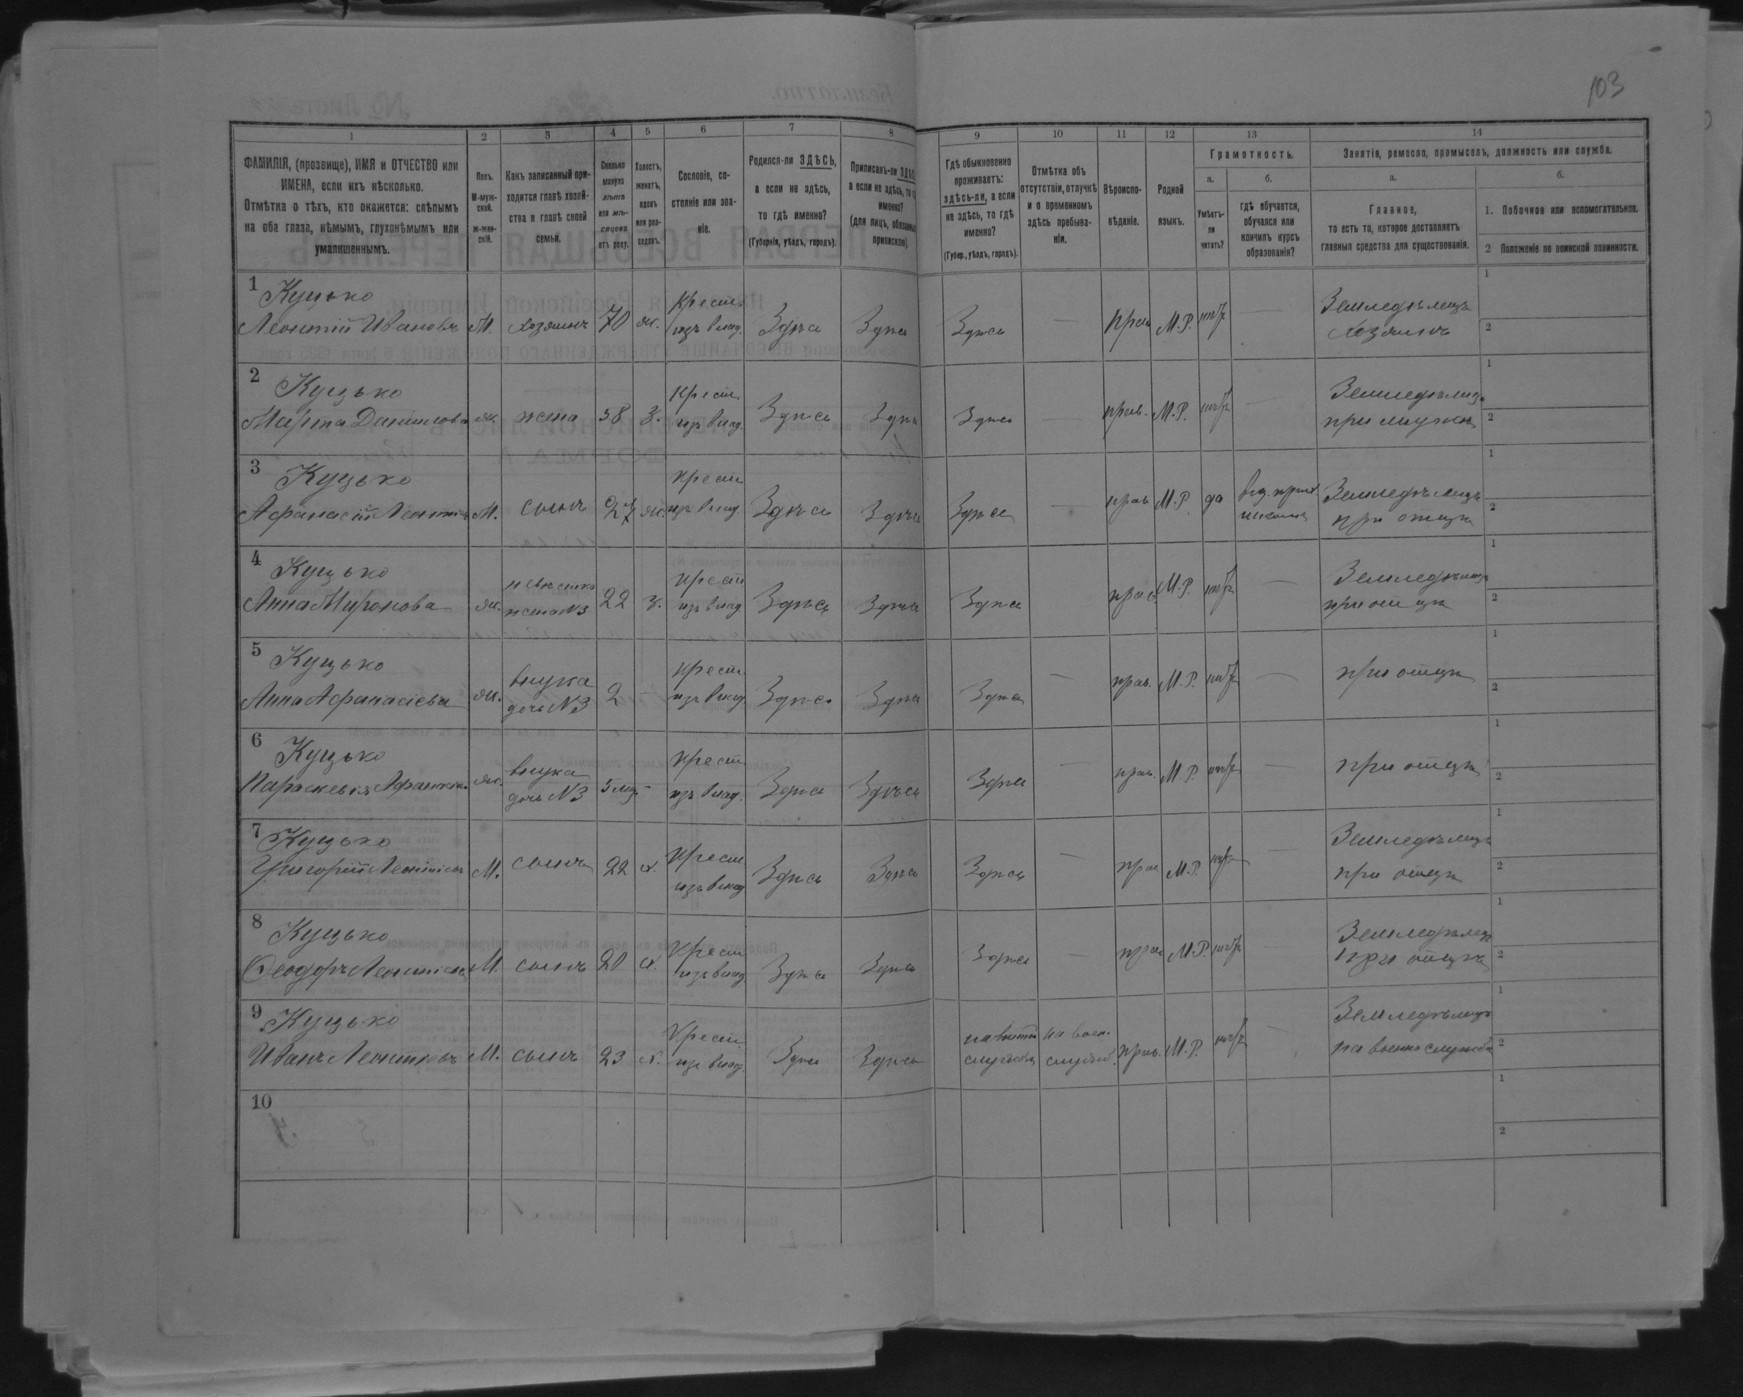 103
1 2 3 4 5 6 7 8 9 10 11 12 13 14
ФАМИЛІЯ, (прозвище), ИМЯ и ОТЧЕСТВО или ИМЕНА, если ихъ нѣсколько.
Отмѣтка о тѣхъ, кто окажется: слѣпымъ на оба глаза, нѣмымъ, глухонѣмымъ или умалишеннымъ.
Полъ.
М-мужской.
ж-женскій.
Какъ записанный приходится главѣ хозяйства и главѣ своей семьи.
Сколько минуло лѣтъ или мѣсяцевъ отъ роду.
Холостъ, женатъ, вдовъ или разведенъ.
Сословіе, состояніе или званіе.
Родился-ли ЗДѢСЬ, а если не здѣсь, то гдѣ именно?
(Губернія, уѣздъ, городъ).
Приписанъ-ли ЗДѢСЬ, а если не здѣсь, то гдѣ именно?
(для лицъ, обязанныхъ припискою).
Гдѣ обыкновенно проживаетъ: здѣсь-ли, а если не здѣсь, то гдѣ именно?
(Губер., уѣздъ, городъ).
Отмѣтка объ отсутствіи, отлучкѣ и о временномъ здѣсь пребываніи.
Вѣроисповѣданіе.
Родной языкъ.
Грамотность.
а.
Умѣетъ-ли читать?
б.
гдѣ обучается, обучался или кончилъ курсъ образованія?
Занятіе, ремесло, промыселъ, должность или служба.
а.
Главное,
то есть то, которое доставляетъ главныя средства для существованія.
б.
1. Побочное или вспомогательное.
2 Положеніе по воинской повинности.
1 Куцько
Леонтій Ивановъ М. хозяинъ 70 ж. Крест. изъ влад. Здѣсь Здѣсь Здѣсь — прав. М.Р. нѣт — Земледѣлецъ хозяинъ 1 2
2 Куцько
Марта Данилова ж. жена 58 з. Крест. изъ влад. Здѣсь Здѣсь Здѣсь — прав. М.Р. нѣт — при мужѣ 1 2
3 Куцько
Афанасій М. сынъ 27 ж. Крест. изъ влад. Здѣсь Здѣсь Здѣсь — прав. М.Р. да Земледѣлецъ при отцѣ 1 2
4 Куцько
Анна Миронова ж. невѣстка жена №3 22 з. Крест. изъ влад. Здѣсь Здѣсь Здѣсь — прав. М.Р. нѣт — при отцѣ 1 2
5 Куцько
Анна Афанасіева ж. внука дочь №3 2 Крест. изъ влад. Здѣсь Здѣсь Здѣсь — прав. М.Р. нѣт — при отцѣ 1 2
6 Куцько
Параскевія ж. внука дочь №3 5 мѣс. - Крест. изъ влад. Здѣсь Здѣсь Здѣсь — прав. М.Р. нѣт — при отцѣ 1 2
7 Куцько
Григорій М. сынъ 22 х. Крест. изъ влад. Здѣсь Здѣсь Здѣсь — прав. М.Р. нѣт — Земледѣлецъ при отцѣ 1 2
8 Куцько
Ѳеодоръ М. сынъ 20 х. Крест. изъ влад. Здѣсь Здѣсь Здѣсь — прав. М.Р. нѣт — при отцѣ 1 2
9 Куцько
Иванъ Леонтіевъ М. сынъ 23 х. Крест. изъ влад. Здѣсь Здѣсь службѣ на воен. службѣ прав. М.Р. нѣт — Земледѣлецъ на военно службѣ 1 2
10 1 2